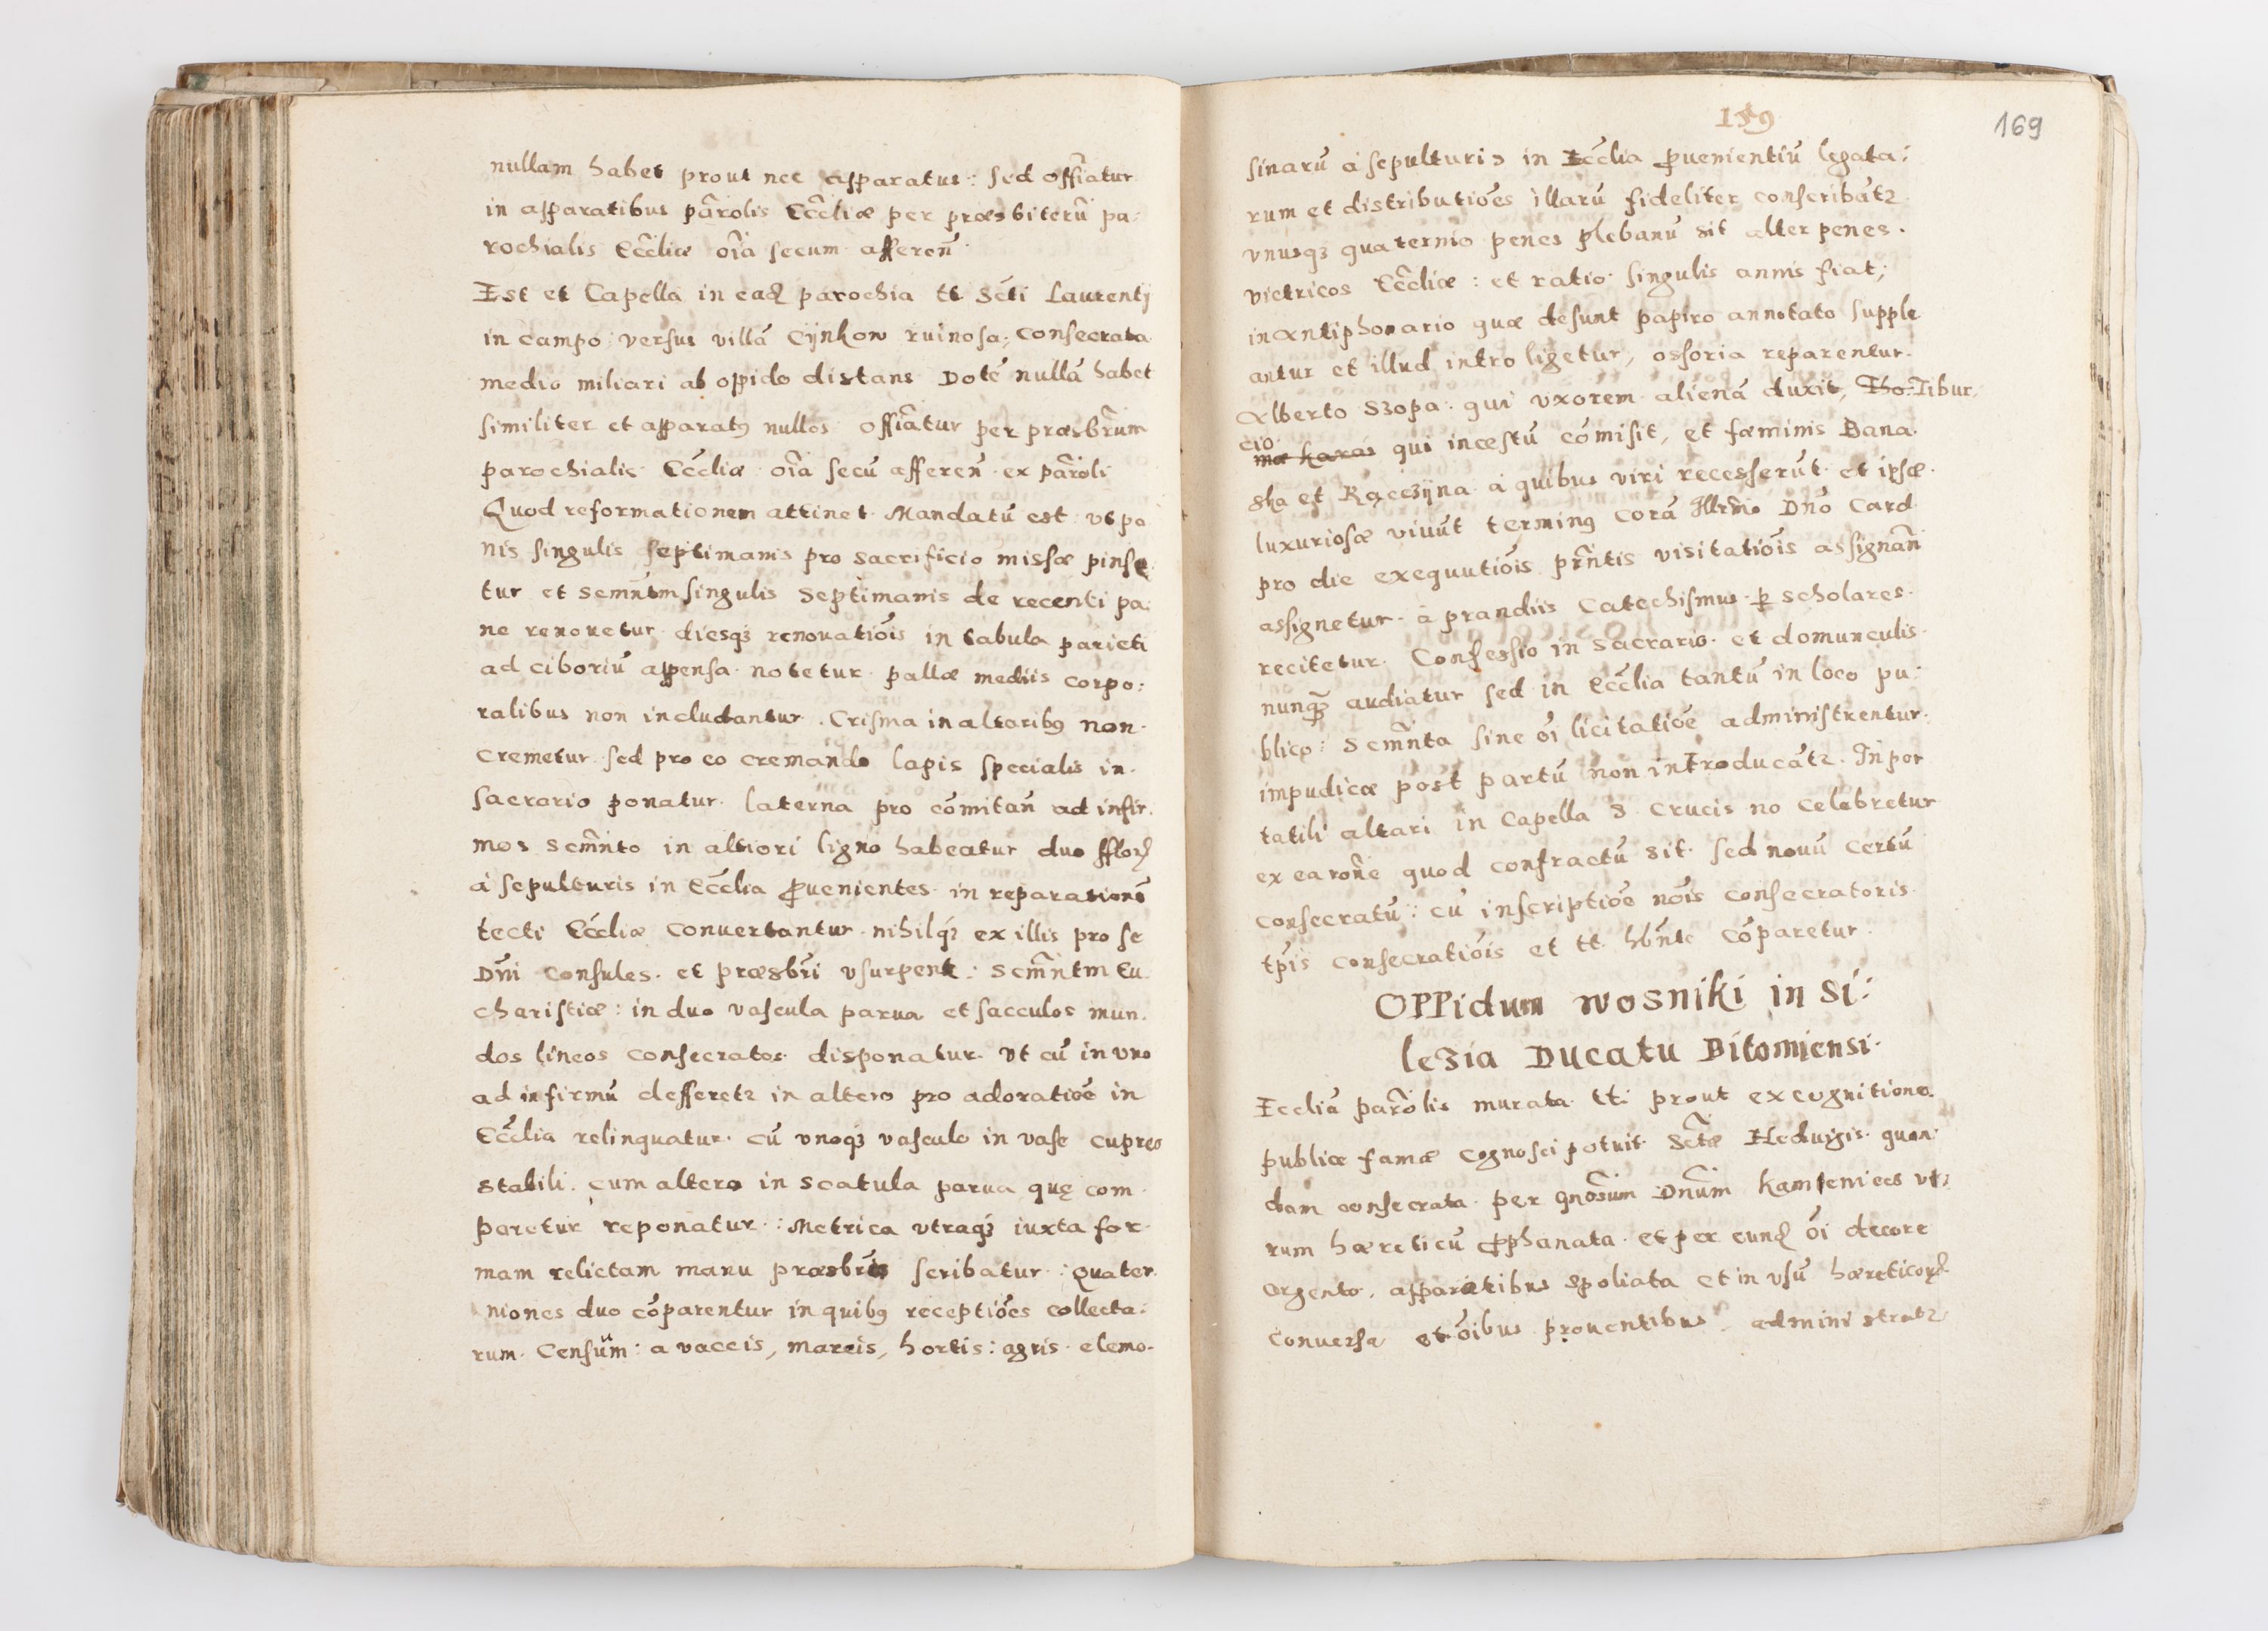 nullam habet prout nec apparatus: sed offiatur
in apparatibus parolis Eccliæ per præsbiterū pa:
rochialis Eccliæ oīa secum afferen̄
Est et Capella in ead parochia tt Scti Laurentij
in campo versus villā Cijnkow ruinosa; consecrata
medio miliari ab oppido distans Dotē nullā habet
similiter et apparatq nullos offiatur per præsbrum
parochialis Eccliæ oīa secū afferen̄ ex paroli
Quod reformationem attinet Mandatū est vt pa
nis singulis septimanis pro sacrificio missæ pinse
tur et semntm singulis septimanis de recenti pa:
ne renouetur diesqʒ renouatiōis in tabula parieti
ad ciboriū appensa notetur pallæ mediis corpo:
ralibus non includantur. Crisma in altaribq non
cremetur sed pro eo cremando lapis specialis in
sacrario ponatur. laterna pro cōmitan̄ ad infir.
mos scmnto in altiori ligno habeatur duo fflor
à sepulturis in Ecclia prouenientes in reparationē
tecti Eccliæ conuertantur nihilqʒ ex illis pro se
Dn̄i Consules. et præsbri vsurpent: Scmntm Eu
charistiæ: in duo vascula parua et sacculos mun.
dos lineos consecratos disponatur vt cū in vno
ad infirmū defferetz in altero pro adoratiōe in
Ecclia relinquatur. cū vnoqʒ vasculo in vase cupreo
stabili. cum altero in scatula parua quę com
paretur reponatur: Metrica vtraqʒ iuxta for
mam relictam manu præsbris scribatur: Quater
niones duo cōparentur in quibq receptiōes collecta:
rum. Censūm: a vaccis, marcis, hortis: agris elemo-
159
169
sinarū à sepulturis in Ecclia prouenientiū legata:
rum et distributiōes illarū fideliter conscribātz
vnusqʒ quaternio penes plebanū sit alter penes.
victricos Eccliæ: et ratio singulis annis fiat;
in antiphonario quæ desunt papiro annotato supple
antur et illud intro ligetur, ossoria reparentur.
Alberto Szopa. qui vxorem alienā duxit, Tho Tibur,
cio
mæ Karas qui incestū cōmisit, et fæminis Bana
ska et Raczijna à quibus viri recesserūt et ipsæ.
luxuriosæ viuūt terminq corā Illrmo Dn̄o Card
pro die exequutiōis prntis visitatiōis assignan̄
assignetur. à prandiis Catechismus per scholares.
recitetur. Confessio in sacrario et domunculis
nunqʒ audiatur sed in Ecclia tantū in loco pu:
blico: Scmnta sine oi licitatiōe administrentur.
impudicæ post partū non introducātz. In por
tatili altari in Capella S Crucis no celebretur
ex ea rone quod confractū sit. sed nouū certū
consecratū: cū inscriptiōe nois consecratoris
tpis consecratiōis et tt hbnte cōparetur.
Oppidum Wosniki in Si:
lezia Ducatu Bitomiensi.
Eccliā parolis murata tti prout ex cognitione
publicæ famæ cognosci potuit Sctæ Heduigis quon
dam consecrata per gnosum Dnum Kamieniecs vt:
rum hæreticū prophanata et per eund oi decore
argento. apparatibus spoliata et in vsū hæreticor
conuersa et oibus prouentibus administratz